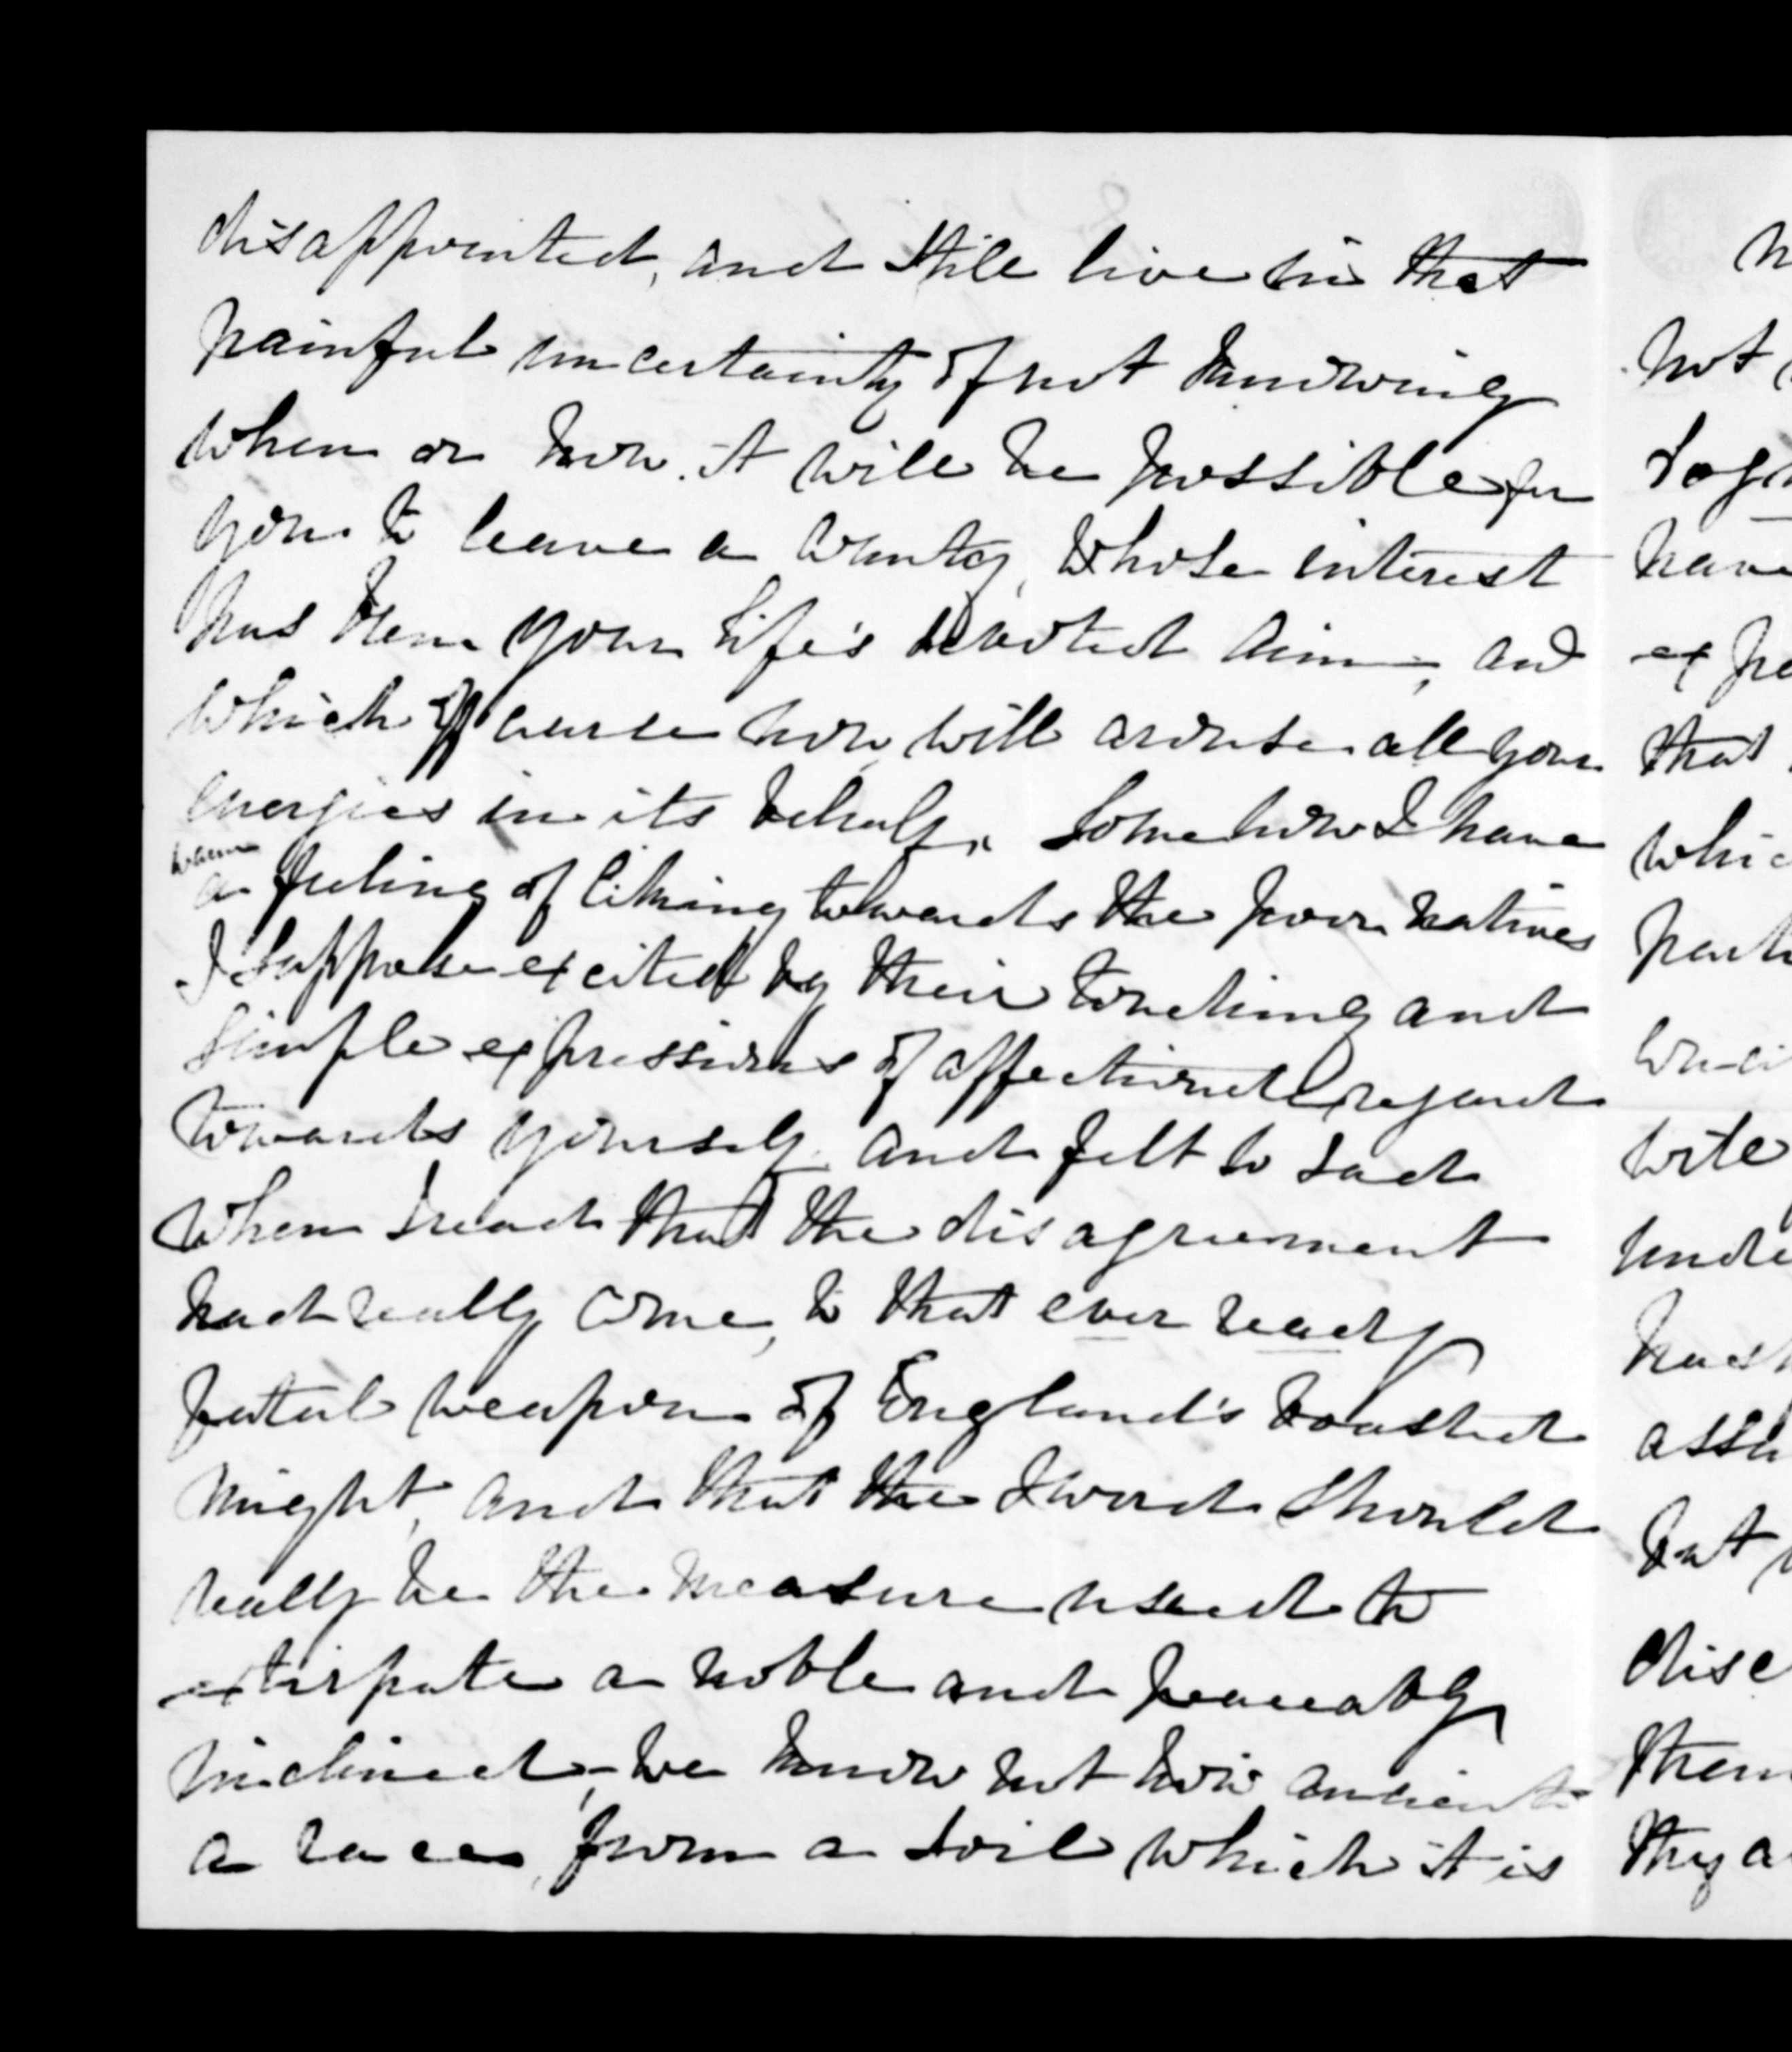 disappointed, and still live in that
painful uncertainty of not knowing
when or how it will be possible for
you to leave a country, whose interest
has been your life's devoted aim, and
which of course now, will arouse all your
energies in its behalf. Somehow I have
warm
a feeling of liking towards the poor natives
I suppose excited by their touching and
simple expressions of affectionate regard
towards yourself, and felt so sad
when I read that the disagreement
had really come, to that ever ready
fatal weapon of England's boasted
might, and that the sword should
really be the measure used to
extirpate a noble and peaceably
inclined, we know not how ancient
a race, from a soil which it is
not
have
that
whic
wile
unde
but
disc
them
they a